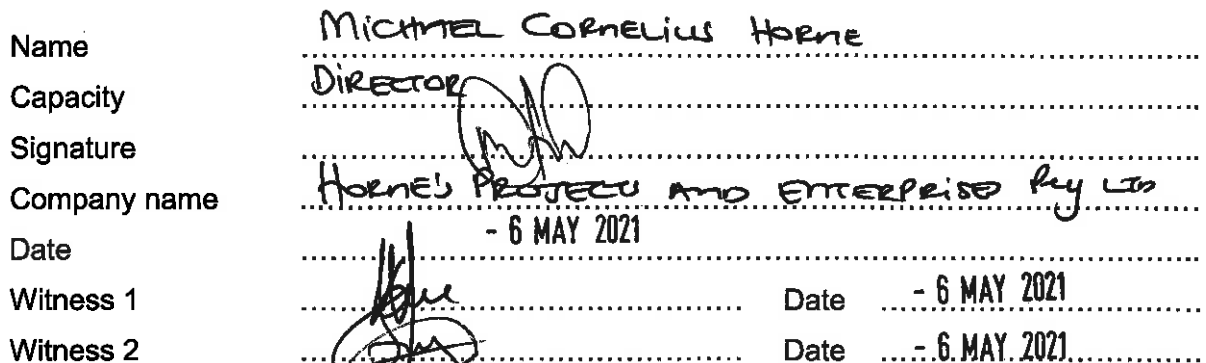 Name MICHAEL CORNELIUS HORNE
Capacity DIRECTOR
Signature
Company name HORNE'S PROJECTS AND ENTERPRISES Pty LTD
Date - 6 MAY 2021
Witness 1 Date - 6 MAY 2021
Witness 2 Date - 6 MAY 2021